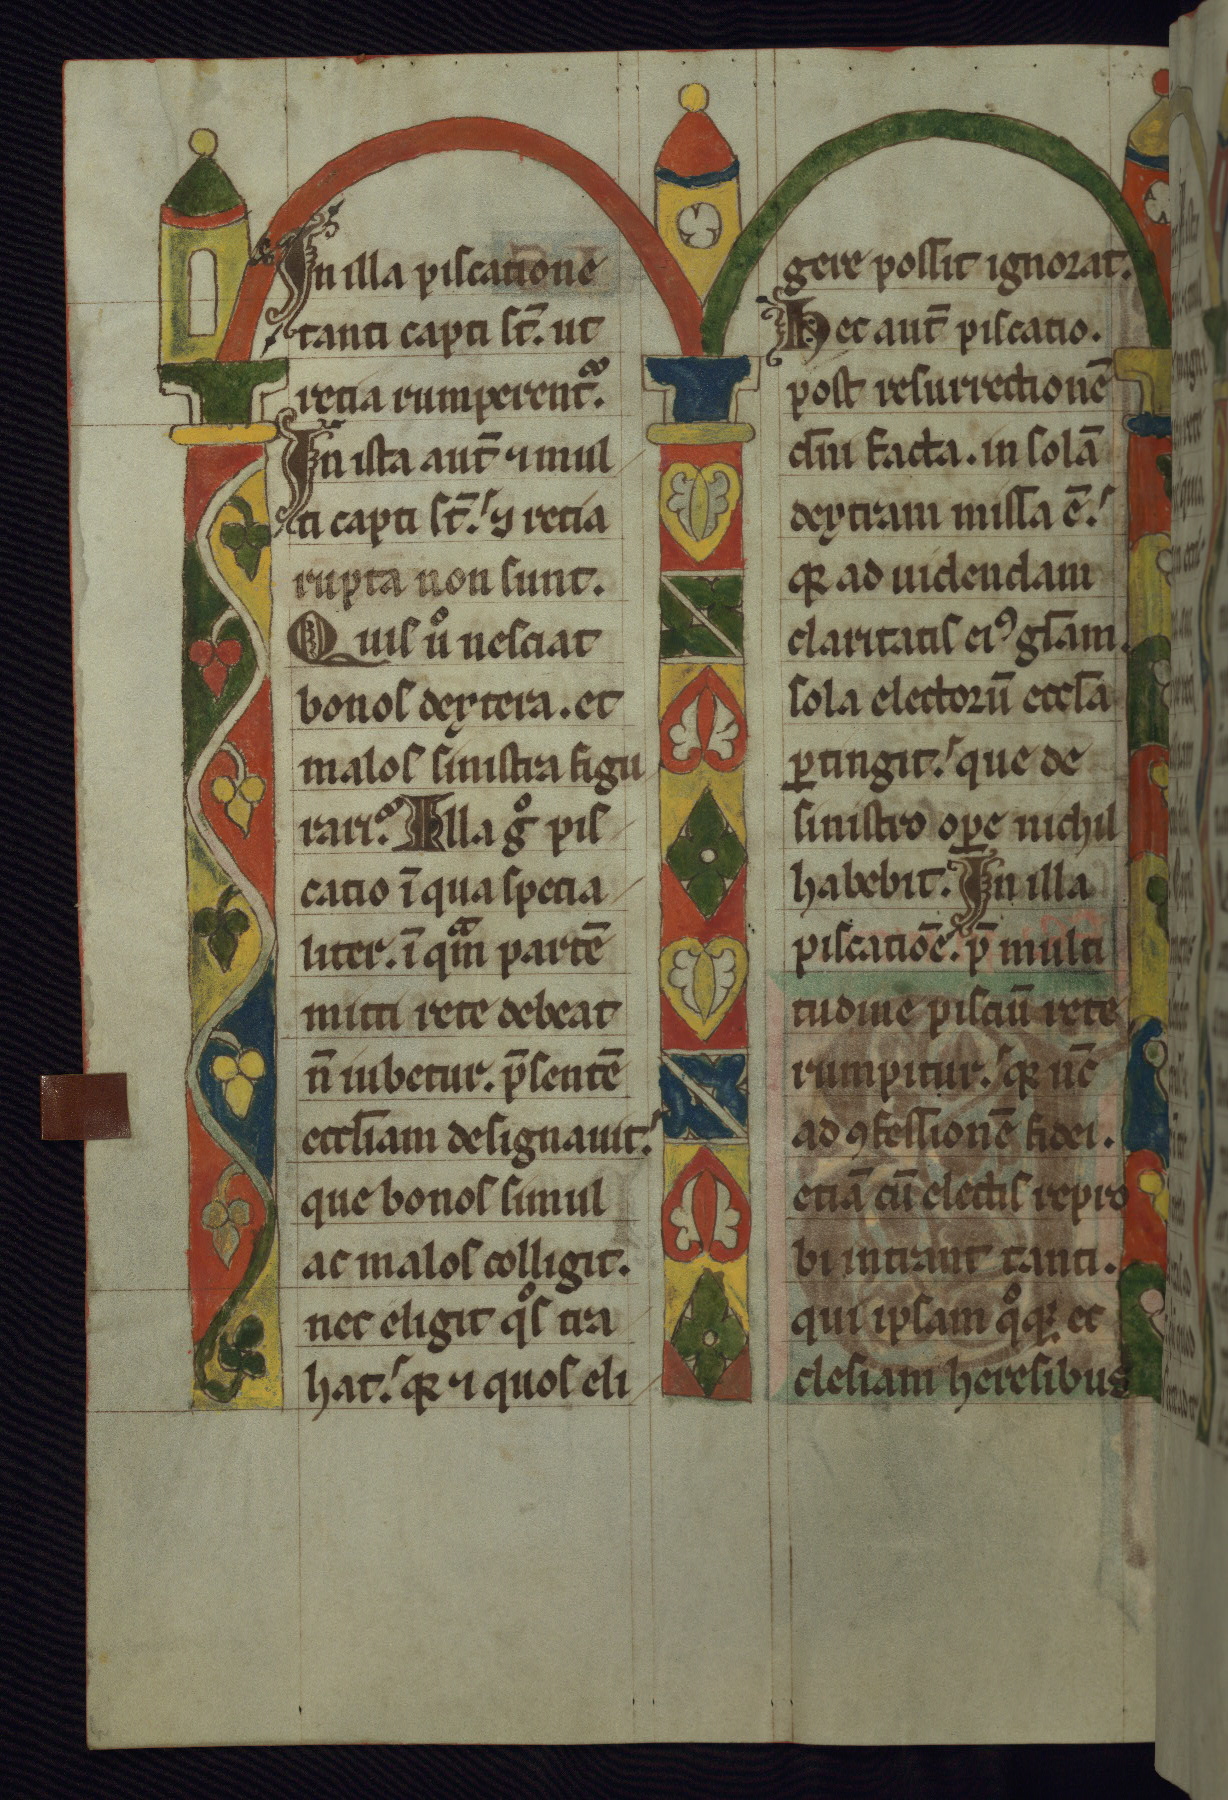 In illa piscatione
tanti capti st̄. ut
retia rumperent᷑.
In ista aut̄ ⁊ mul
ti capti st̄. ⁊ retia
rupta non sunt.
Quis uͦ nesciat
bonos dextera. et
malos sinistra figu
rari. Illa gͦ pis
catio ī qua specia
liter. ī qᵃm partē
mitti rete debeat
n̄ iubetur. p̄sentē
eccl̄iam designauit.
que bonos simul
ac malos colligit.
nec eligit qͦs tra
hat. qꝛ ⁊ quos eli
gere possit ignorat.
Hec aut̄ piscatio.
post resurrectionē
dn̄i facta. in solā
dextram missa ē.
qꝛ ad uidendam
claritatis eiꝰ gl̄am.
sola electorū eccl̄a
ꝑtingit. que de
sinistro oꝑe nichil
habebit. In illa
piscatiōe. p̄ multi
tudine pisciū rete
rumpitur. qꝛ nc̄
ad ꝯfessionē fidei.
etiā cū electis repro
bi intrant tanti.
qui ipsam qͦqꝫ ec
clesiam heresibus